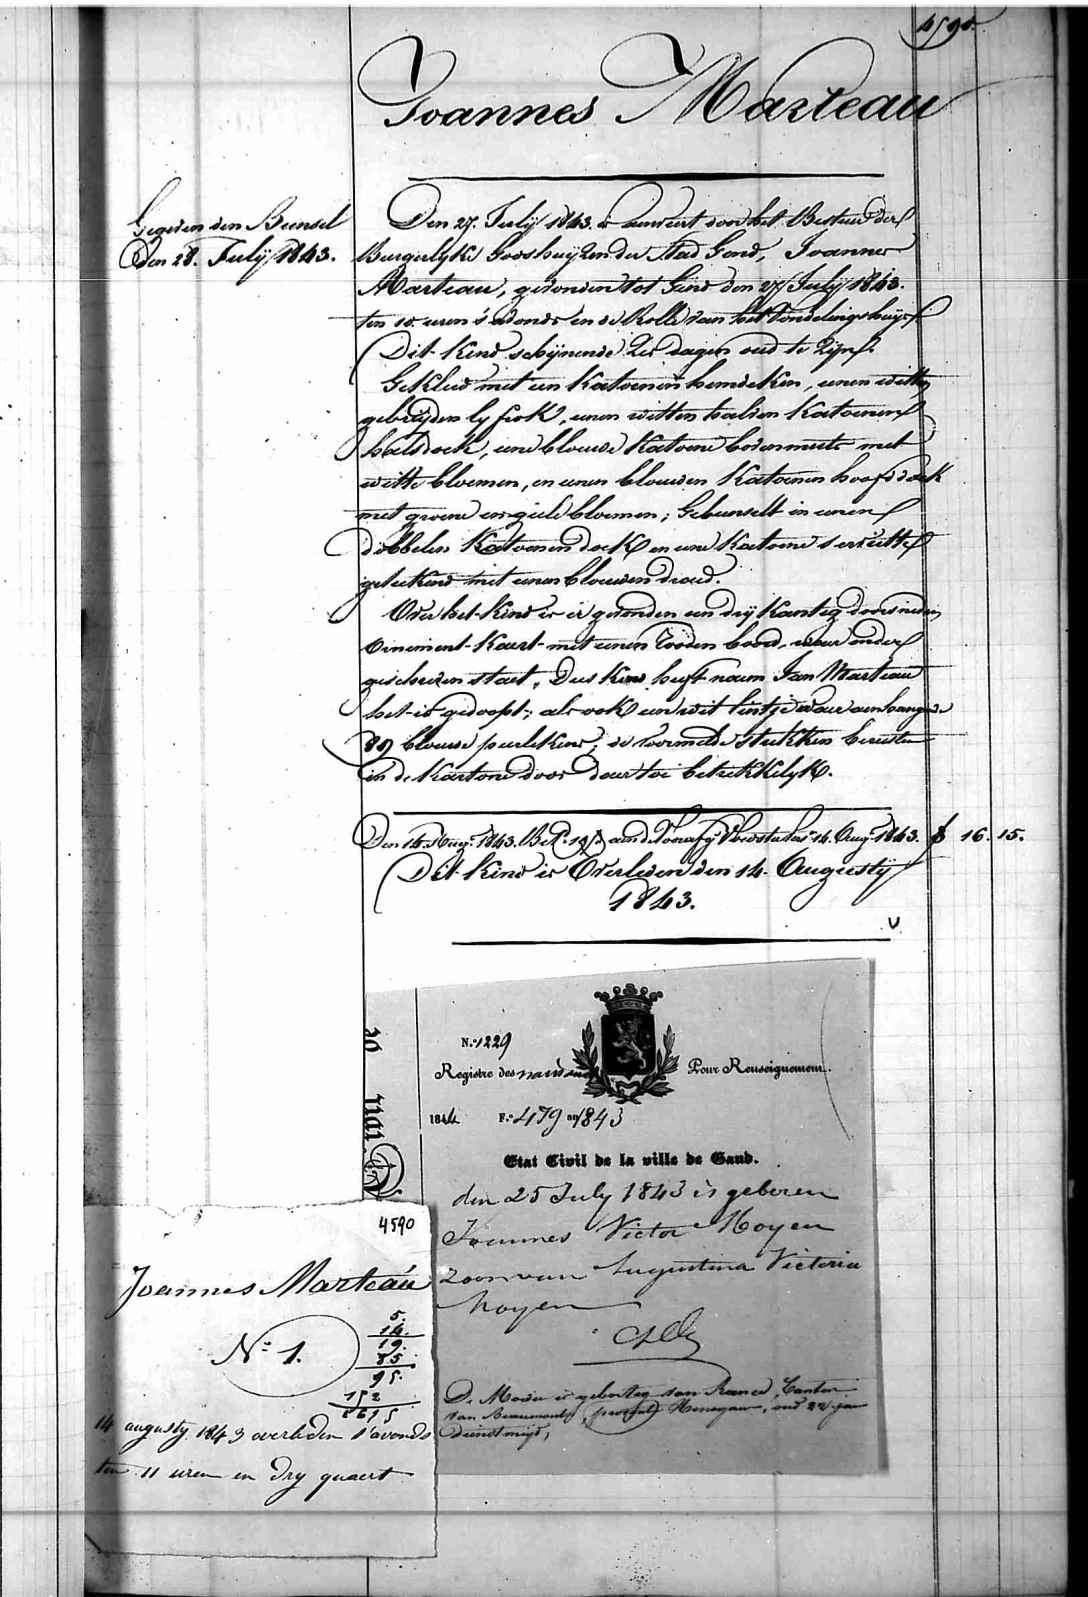 4590.
Joannes Marteau
Gegeven den Bunsel
Den 28. July 1843.
Den 27. July 1843. is aenveert door het Bestuer der
Burgerlyke Godshuyzen der Stad Gend, Joannes
Marteau, gevonden tot Gend den 27 July 1843.
ten 10. uren s'avonds in de Rolle van het Vondelingshuys.
Dit Kind schynende 2 dagen oud te Zyn.
Gekleed met een Katoenen hemdeken, eenen witten
gebreyden lyfrok, eenen witten katoenen
halsdoek, eene blouwe Katoene met
witte bloemen, en eenen blouwen Katoenen hoofddoek
met groene en geele bloemen; Gebunselt in eenen
dobbelen Katoenen doek en eene Katoene serviette
geteekend met eenen blouwen draed.
Over het Kind is er gevonden een dry kanteg doorsneden
ornement-Kaert met eenen rooden boord, waer onder
geschreven staet, Dees Kind heeft naem Jan Marteau
het is gedoopt; als ook een wit lintje waer aen hangende
89 blouwe peerlekens; de voormelde stukken berusten
in de Kartone doos daer toe betrekkelyk.
Den 14. Aug. 1843. 14. Aug. 1843. f 16. 15.
Dit Kind is Overleden den 14. Augusty
1843.
N.o 1229
Registre des naissances Pour Renseignement.
1844 F.o 479 an 1843
Etat Civil de la ville de Gand.
den 25 July 1843 is geboren
Joannes Victor Moyen
Zoon van Augustina Victoria
Moyen
De Moeder is geboortig van Rance, Canton
van Beaumont, (provincie) Henegauw, oud 22 jaer
dienstmeyd,
4590
Joannes Marteau
N.o 1.
5.
14.
19.
85
95.
152
2615
14 augusty 1843 overleden s'avonds
ten 11 uren en dry quaert